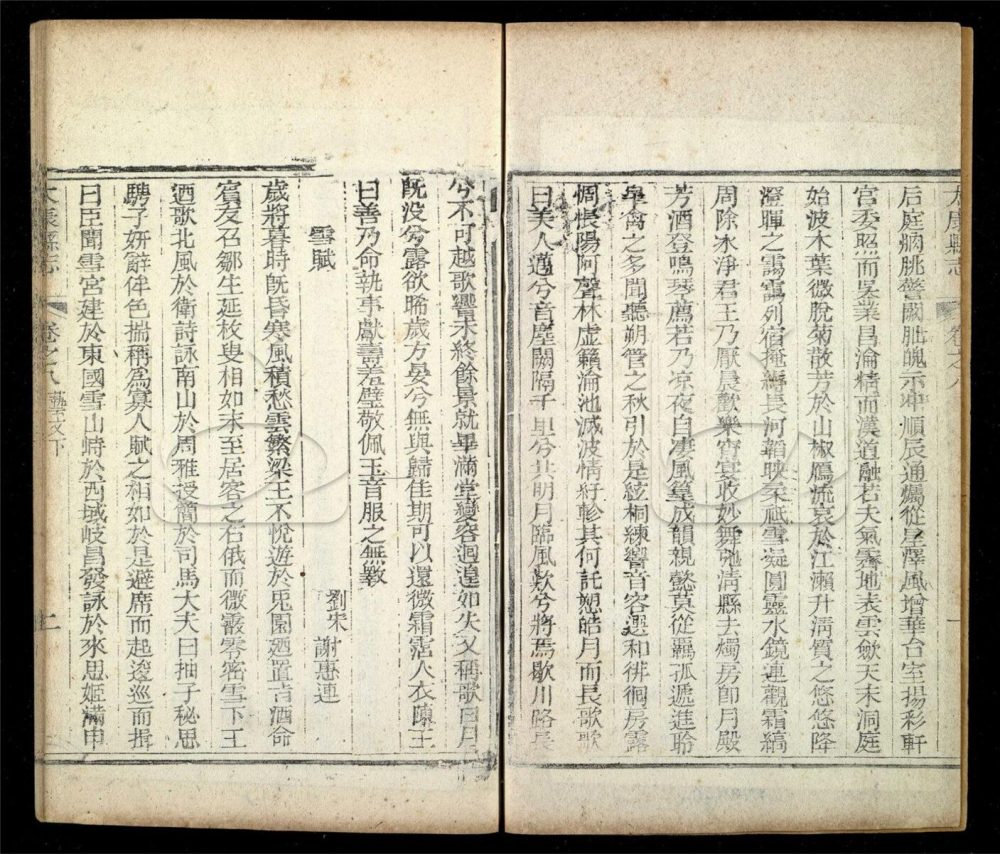 太康縣志 卷之八
后庭朒朓警闕朏魄示冲順辰通燭從星澤風增華台室揚彩軒
宮委照而吳業昌淪精而漢道融若夫氣霽地表雲歛天末洞庭
始波木葉微脫菊散芳於山椒鴈流哀於江瀨升淸質之悠悠降
澄暉之靄靄列宿掩縟長河韜映柔祇雪凝圓靈水鏡連觀霜縞
周除氷淨君王乃厭晨歡樂宵宴收妙舞弛淸縣去燭房卽月殿
芳酒登鳴琴薦若乃凉夜自凄風篁成韻親懿莫從羈孤遞進聆
皐禽之多聞聽朔管之秋引於是絃桐練響音容選和徘徊房露
惆悵陽阿聲林虛籟淪池滅波情紆軫其何託愬皓月而長歌歌
曰美人邁兮音塵闕隔千里兮共明月臨風歎兮將焉歇川路長
兮不可越歌響未終餘景就畢滿堂變容洄遑如失又稱歌曰月
旣没兮露欲晞歲方晏兮無與歸佳期可以還微霜沾人衣陳王
曰善乃命執事獻壽羞璧敬佩玉音服之無斁
雪賦
劉宋 謝惠連
歲將暮時旣昏寒風積愁雲繁梁王不悅遊於兎園廼置旨酒命
賓友召鄒生延枚叟相如末至居客之右俄而微霰零密雪下王
迺歌北風於衛詩詠南山於周雅授簡於司馬大夫曰抽子秘思
騁子妍辭侔色揣稱爲寡人賦之相如於是避席而起逡巡而揖
曰臣聞雪宮建於東國雪山峙於西域岐昌發詠於來思姬滿申
太康縣志 卷之八 藝文下